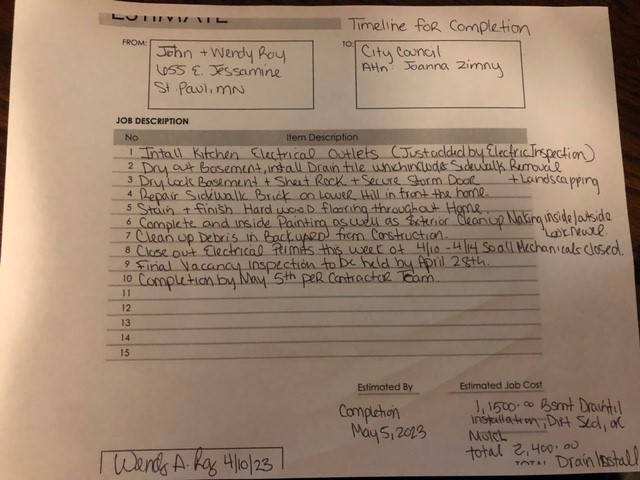 ESTIMATE
Timeline for Completion
FROM:
John + Wendy Roy
655 E. Jessamine
St. Paul, MN
TO:
City Council
Attn: Joanna Zimny
JOB DESCRIPTION
No Item Description
1 Intall Kitchen Electrical Outlets (Just added by Electric Inspection)
2 Dry out Basement, install Drain tile which includes Sidewalk Removal
+ Landscapping
3 Dry Lock Basement + Sheet Rock + Secure Storm Door
4 Repair Sidewalk Brick on Lower Hill in front the home.
5 Stain + finish Hard wood flooring throughout Home.
6 Complete and inside Painting as well as Exterior Clean up Making inside/outside
look newer.
7 Clean up Debris in Backyard from Construction.
8 Close out Electrical Permits this week of 4/10 - 4/14 so all Mechanicals closed.
9 Final Vacancy Inspection to be held by April 28th.
10 Completion by May 5th per Contractor Team.
11
12
13
14
15
Estimated By
Estimated Job Cost
Completion
May 5, 2023
1,1500.00 Bsmt Draintil
installation, Dirt Sod, or
Mulch
total 2,400.00
TOTAL Drain Install
Wendy A. Roy 4/10/23